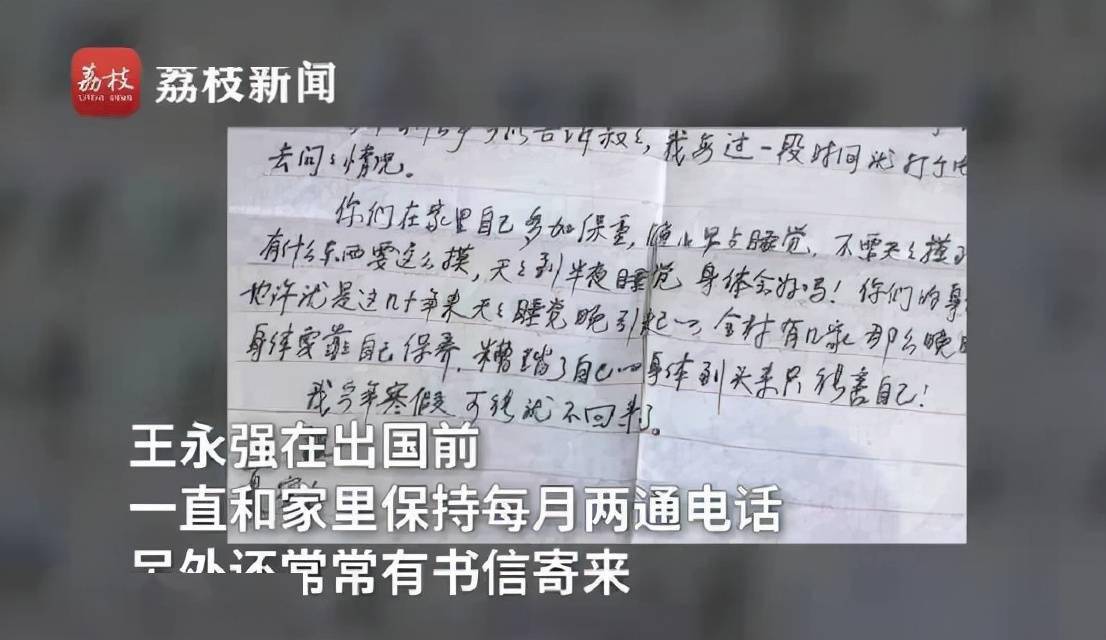 荔枝
荔枝新闻
叔叔，我每过一段时间就打个电
去问问情况。
你们在家里自己多加保重，晚上早点睡觉，不要天天摸
有什么东西要这么摸，天天到半夜睡觉 身体会好吗！你们的身
也许就是这几十年来天天睡觉晚引起的 全村有几家那么晚
身体要靠自己保养，糟踏了自己的身体到头来只能害自己！
我今年寒假可能就不回来了。
王永强在出国前
一直和家里保持每月两通电话
另外还常常有书信寄来